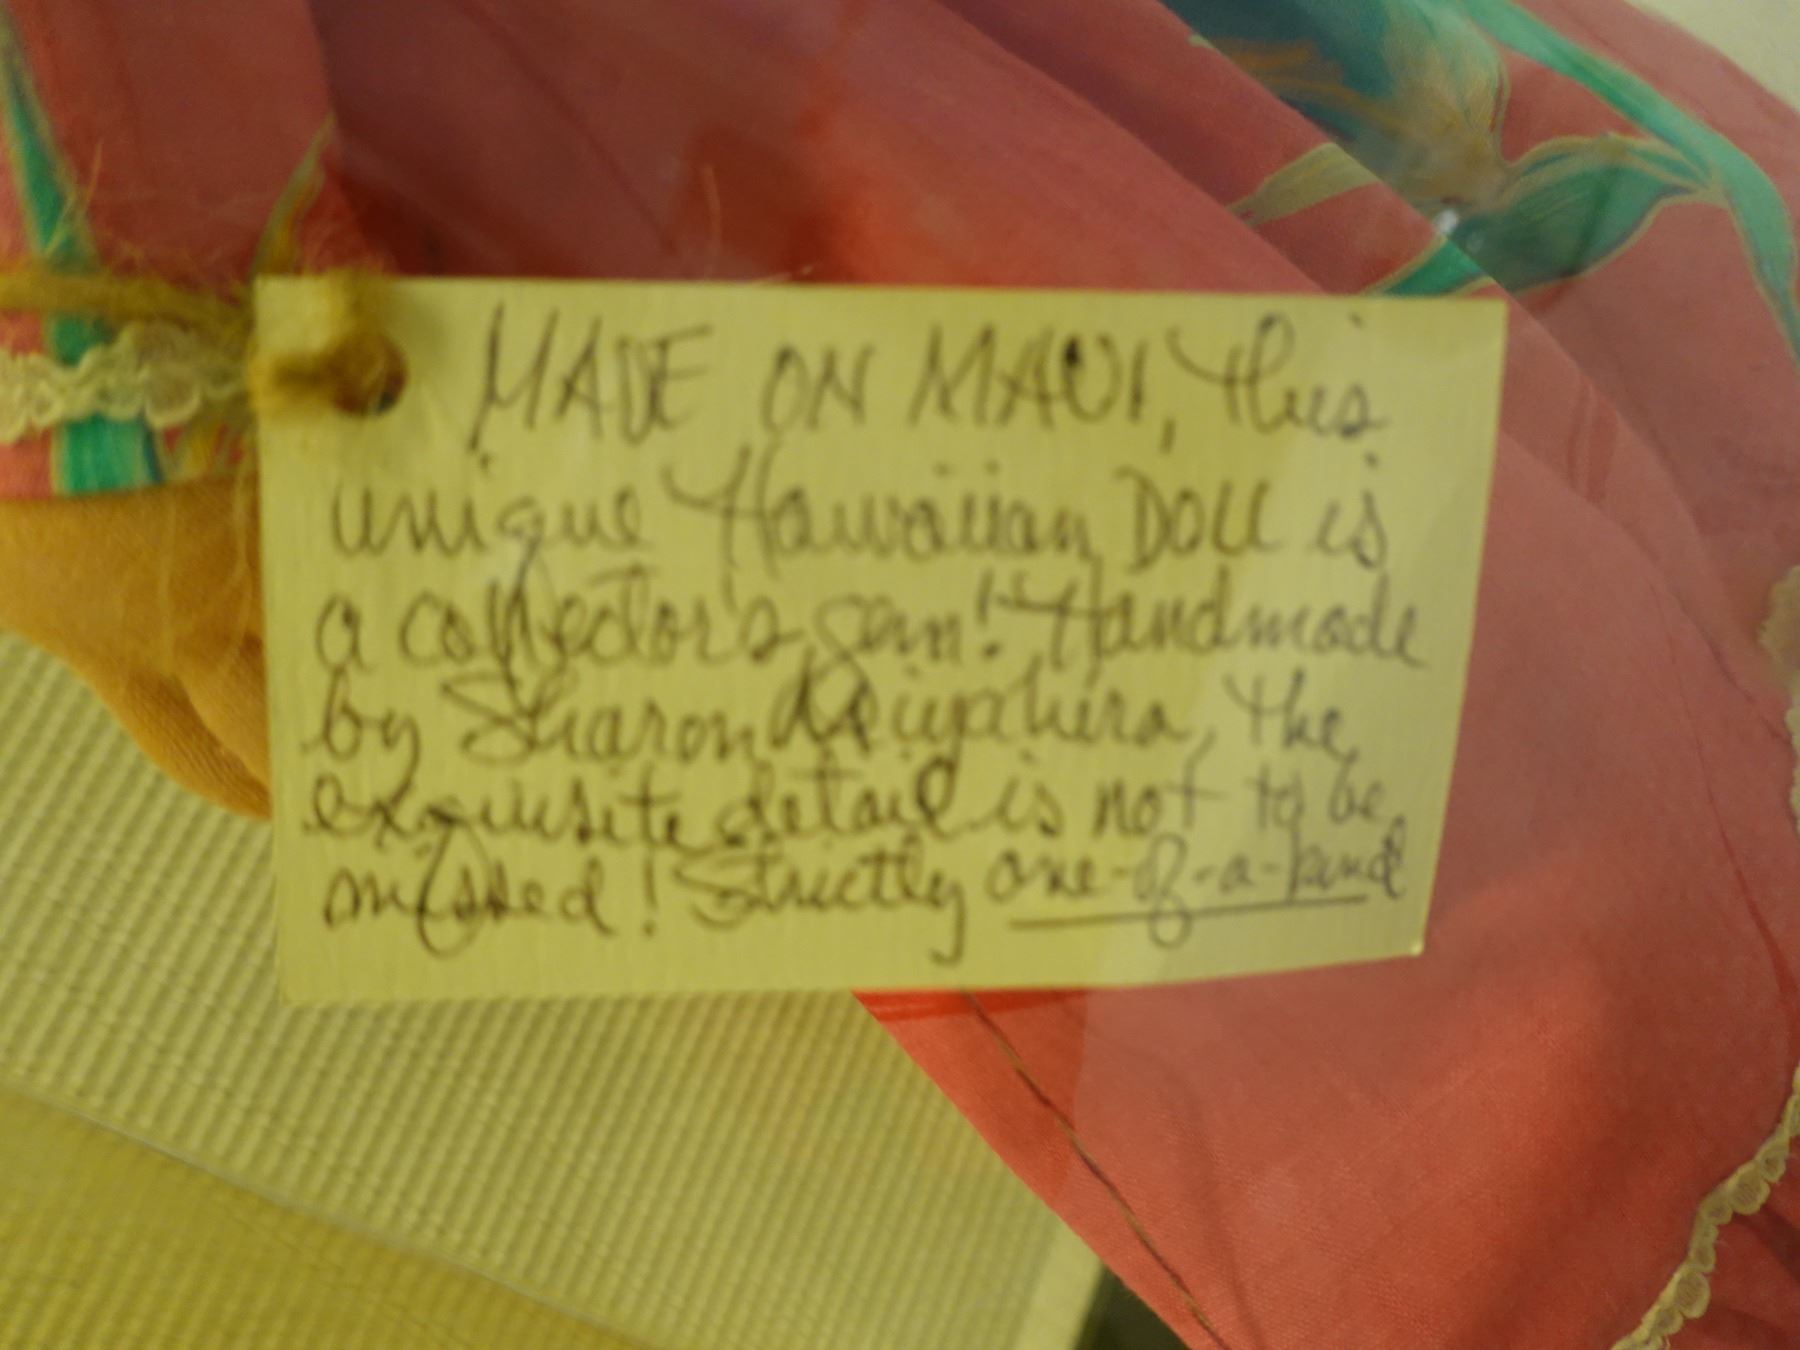 MADE ON MAUI, this
unique Hawaiian Doll is
a collectors gem! Handmade
by Sharon the
exquisite detail is not to be
missed! Strictly one-of-a-kind